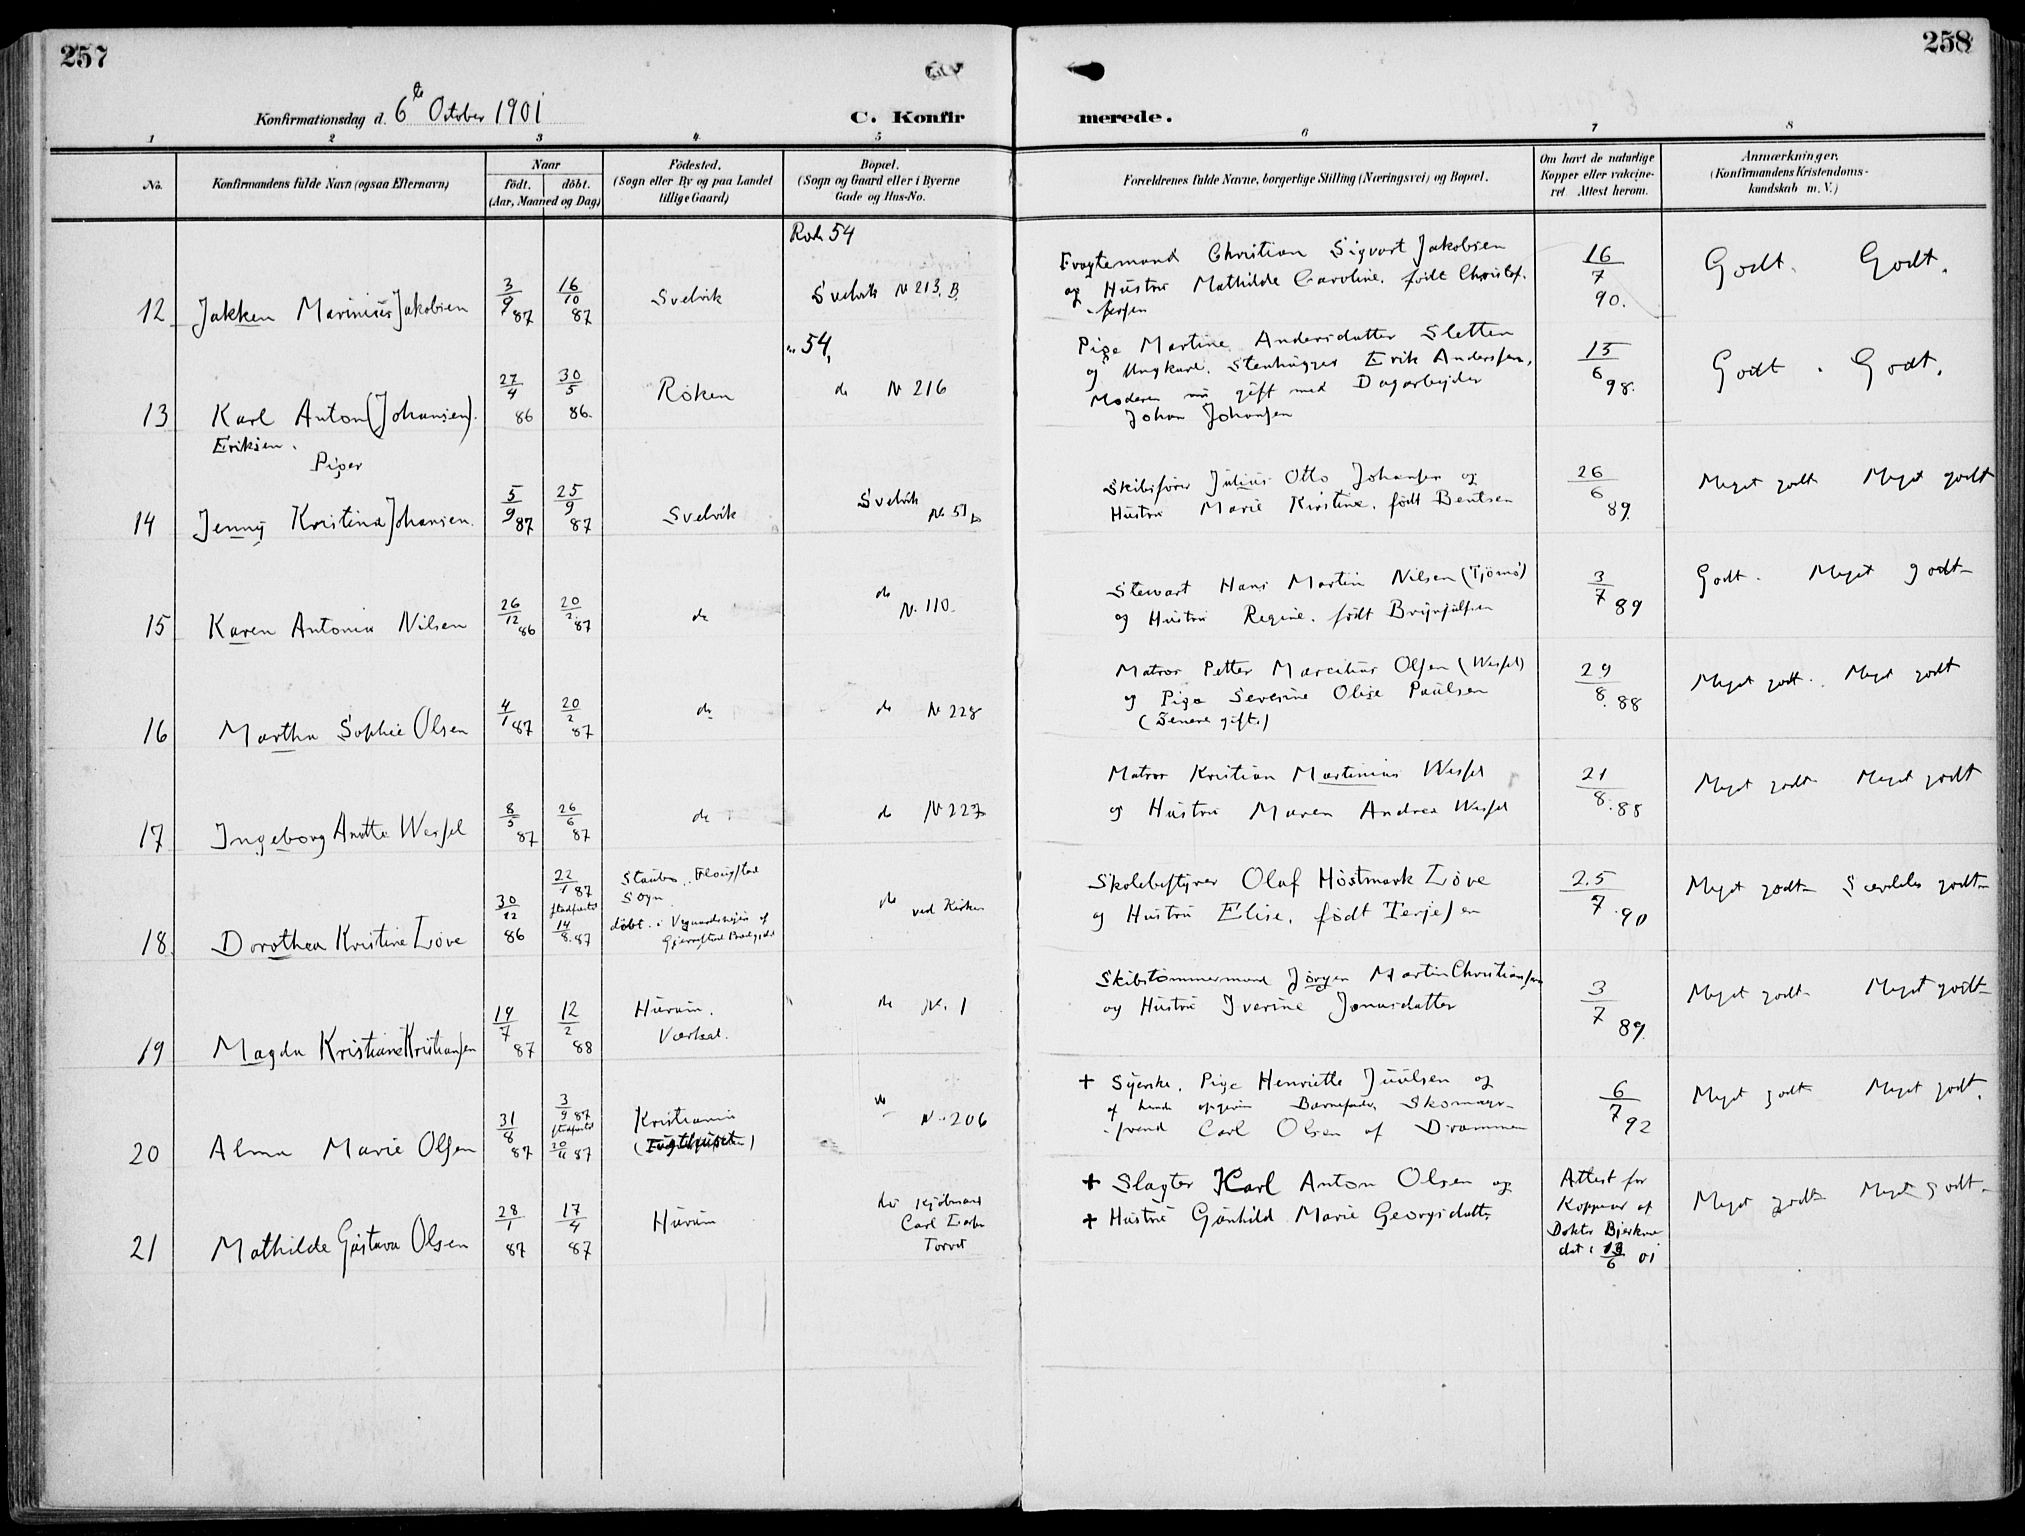 257
258
Konfirmationsdag d. 6te October 1901
C. Konfir
merede.
1 2 3 4 5 6 7 8
No.
Konfirmandens fulde Navn (ogsaa Efternavn)
Naar
født. døbt.
(Aar, Maaned og Dag)
Fødested.
(Sogn eller By og paa Landet
tillige Gaard)
Bopæl.
(Sogn og Gaard eller i Byerne
Gade og Hus-No.
Forældrenes fulde Navne, borgerlige Stilling (Næringsvei) og Bopæl.
Om havt de naturlige
Kopper eller vakcine-
ret Attest herom.
Anmærkninger,
(Konfirmandens Kristendoms-
kundskab m. V.)
12 Jakken Marinius Jakobsen
3/9 87 16/10 87
Svelvik
Rode 54
Svelvik N 213. B.
Fragtemand Christian Sigvart Jakobsen
og Hustru Mathilde Caroline. født Christof-
-fersen
16/7 90.
Godt. Godt.
13 Karl Anton (Johansen).
Eriksen.
27/4 86 30/5 86.
Röken
" 54,
do N 216
Pige Martine Andersdatter Sletten
og Ungkarl. Stenhugger Erik Anderssen,
Moderen nu gift med Dagarbejder
Johan Johansen
15/6 98.
Godt. Godt.
Piger
14 Jenny Kristina Johansen.
5/9 87 25/9 87
Svelvik
Svelvik
N. 51 b
Skibsfører Julius Otto Johansen og
Hustru Marie Kirstine. født Bentsen
26/6 89.
Meget godt Meget godt
15 Karen Antonia Nilsen
26/12 86 20/2 87
do
do
N. 110.
Stewart Hans Martin Nilsen (Tjömö)
og Hustru Regine. født Brynjulfsen
3/7 89
Godt. Meget godt
16 Martha Sophie Olsen
4/1 87 20/2 87
do
do N 228
Matros Petter Marcelius Olsen (Wessel)
og Pige Severine Olise Paulsen
(Senere gift.)
29/8. 88
Meget godt. Meget godt
17 Ingeborg Anette Wessel
8/5 87 26/6 87
do
do N 227
Matros Kristian Martinius Wessel
og Hustru Maren Andrea Wessel
21/8. 88
Meget godt Meget godt
18. Dorothea Kristine Löve
30/12 86
22/1 87
stadfæstet
14/8. 87
Sogn
døbt i
do
ved Kirken
Skolebestyrer Olaf Höstmark Löve
og Hustru Elise. født Terjesen
25/7. 90
Meget godt Særdeles godt
19 Magda Kristiane Kristiansen
19/7 87 12/2 88
Hurum.
do N. 1
Skibstömmermand Jörgen Martin Christiansen
og Hustru Iverine Jonasdatter
3/7 89.
Meget godt Meget godt
20 Alma Marie Olsen
31/8 87
3/9 87
stadfæstet
20/11 87
Kristiania
do
N. 206
+ Syerske. Pige Henriette Juulsen og
af hende opgiven Barnefader Skomager-
-svend Carl Olsen af Drammen
6/7 92
Meget godt Meget godt.
21 Mathilde Gustava Olsen
28/1 87 17/4 87
Hurum
do Kjøbmand
Carl
Torvet
+ Slagter Karl Anton Olsen og
+ Hustru Gunhild Marie Georgsdatter
Attest for
Kopperne af
Doktor Bjerkne
dat: 13/6 01
Meget godt Meget godt